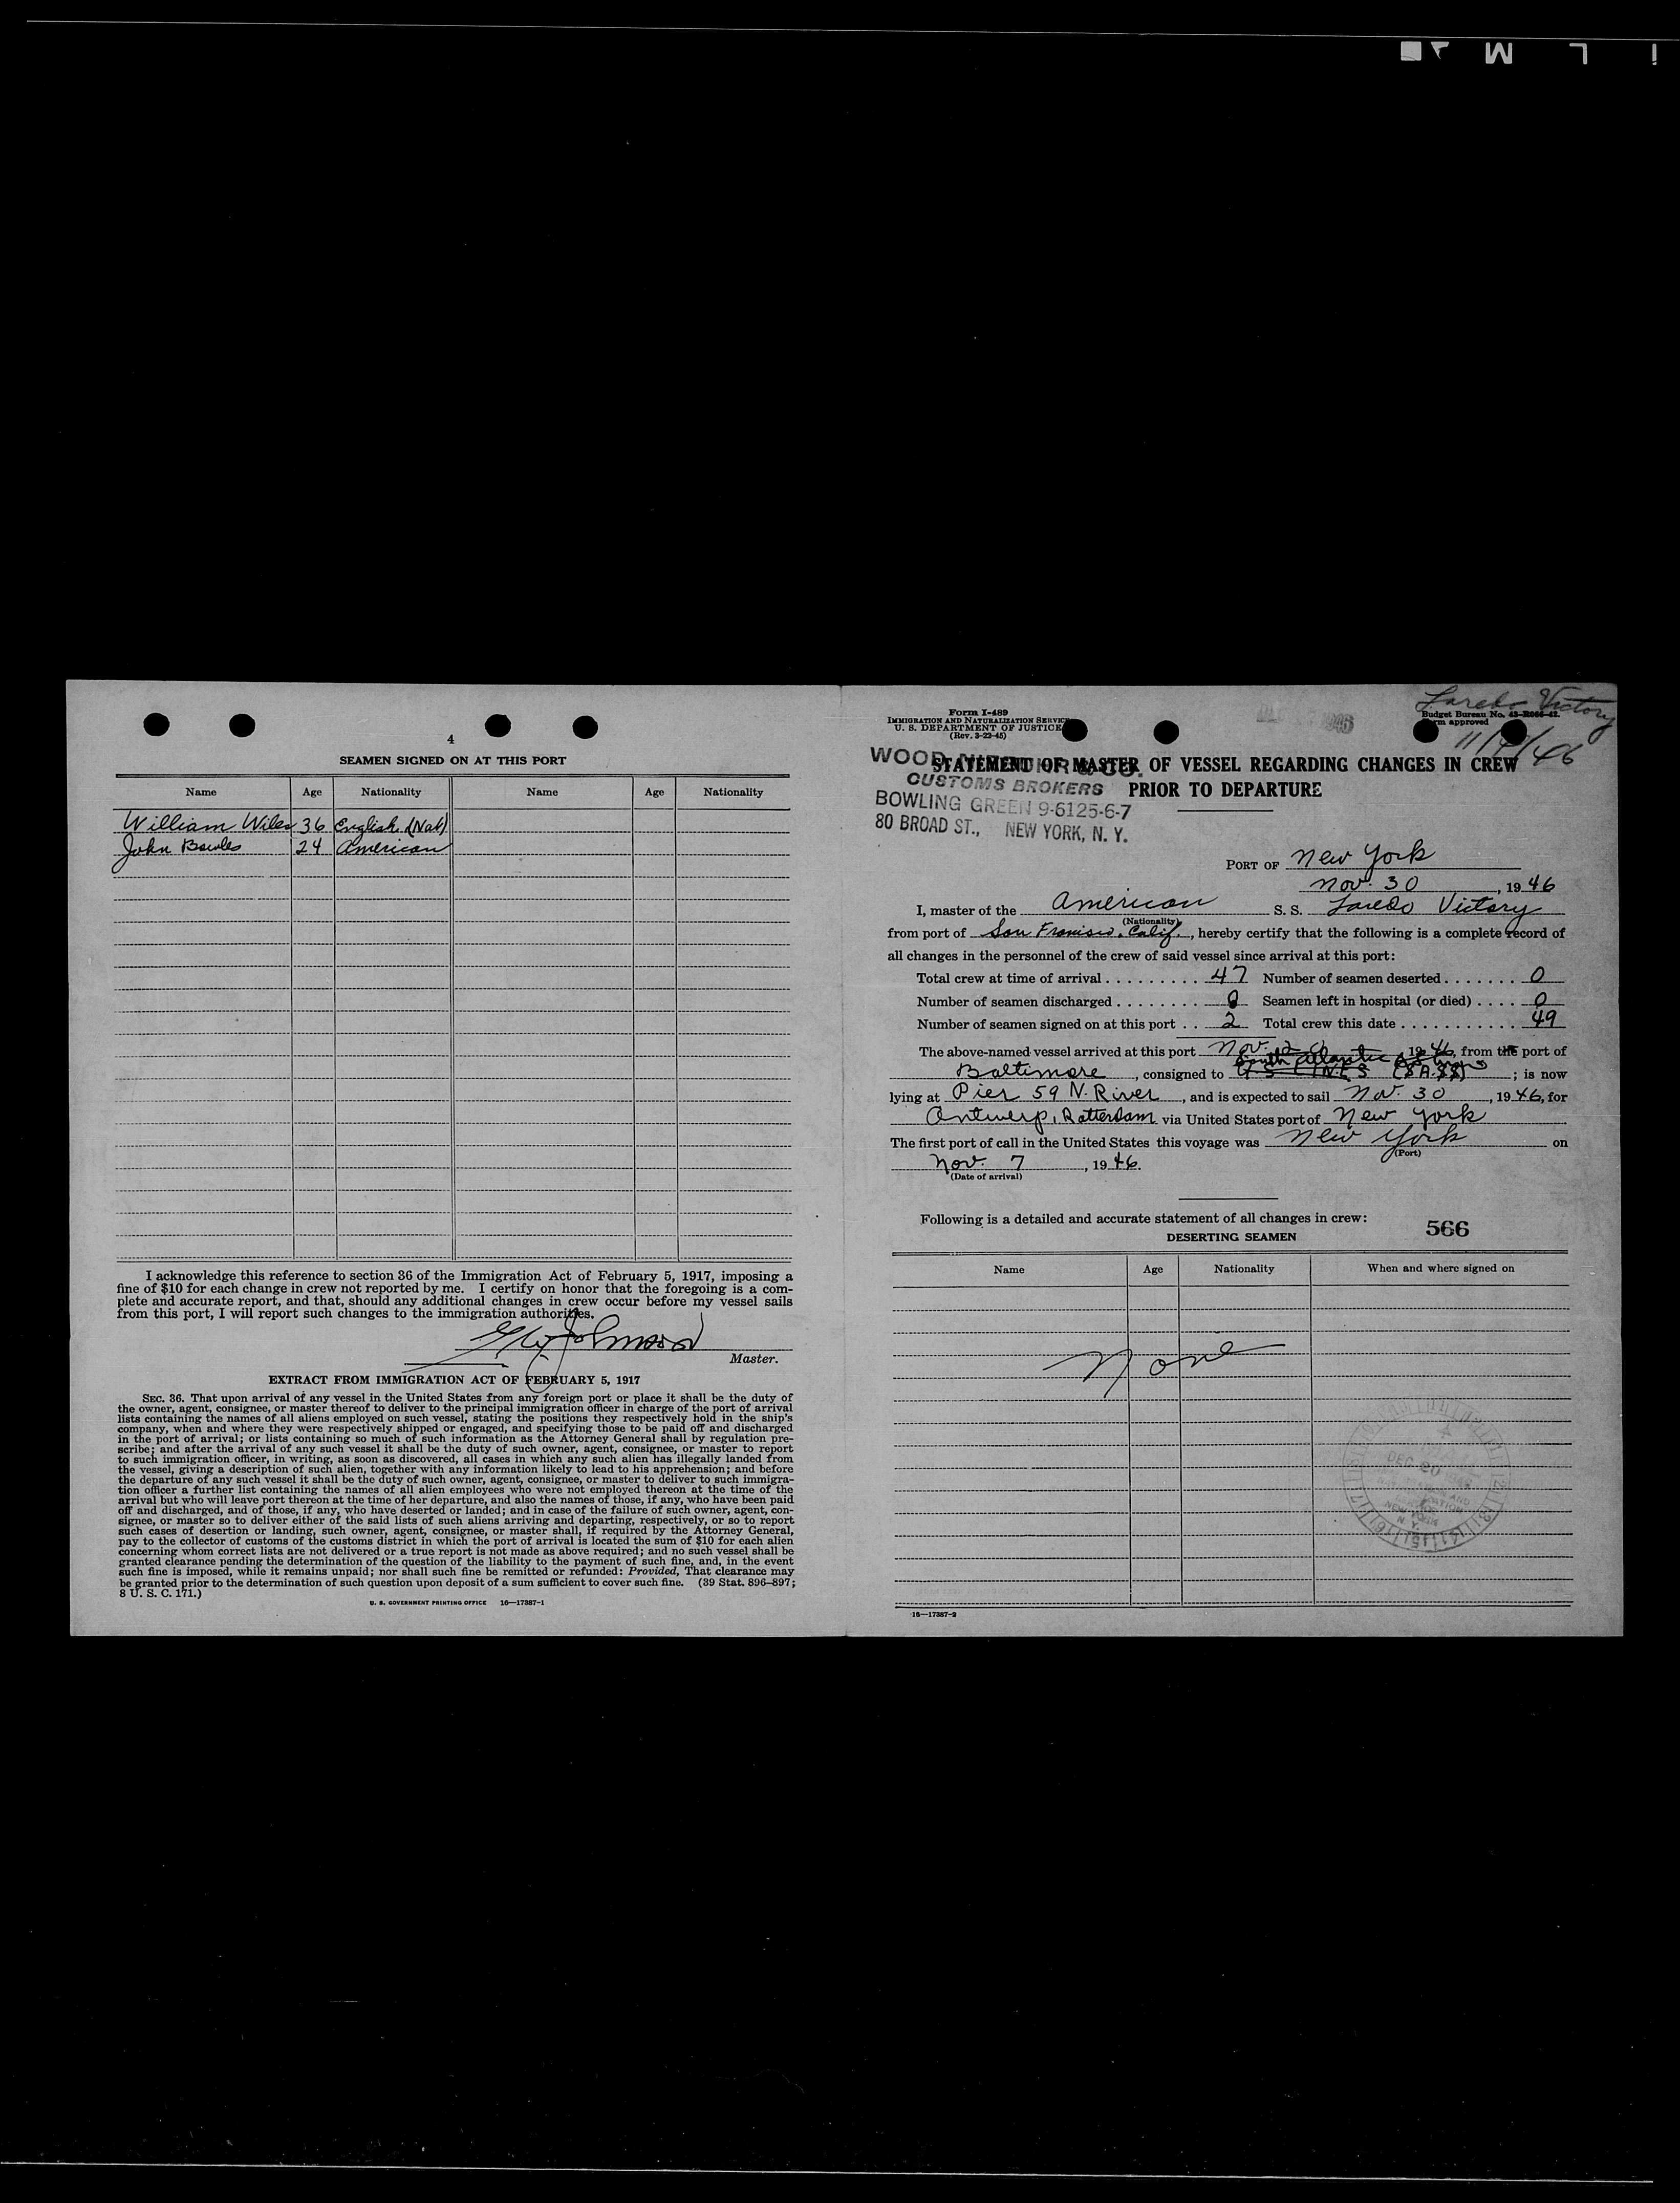 4
SEAMEN SIGNED ON AT THIS PORT
Name Age Nationality Name Age Nationality
William Wiles 36 English (Nat)
John Bowles 24 American
I acknowledge this reference to section 36 of the Immigration Act of February 5, 1917, imposing a
fine of $10 for each change in crew not reported by me. I certify on honor that the foregoing is a com-
plete and accurate report, and that, should any additional changes in crew occur before my vessel sails
from this port, I will report such changes to the immigration authorities.
Johnson
Master.
EXTRACT FROM IMMIGRATION ACT OF FEBRUARY 5, 1917
SEC. 36. That upon arrival of any vessel in the United States from any foreign port or place it shall be the duty of
the owner, agent, consignee, or master thereof to deliver to the principal immigration officer in charge of the port of arrival
lists containing the names of all aliens employed on such vessel, stating the positions they respectively hold in the ship's
company, when and where they were respectively shipped or engaged, and specifying those to be paid off and discharged
in the port of arrival; or lists containing so much of such information as the Attorney General shall by regulation pre-
scribe; and after the arrival of any such vessel it shall be the duty of such owner, agent, consignee, or master to report
to such immigration officer, in writing, as soon as discovered, all cases in which any such alien has illegally landed from
the vessel, giving a description of such alien, together with any information likely to lead to his apprehension; and before
the departure of any such vessel it shall be the duty of such owner, agent, consignee, or master to deliver to such immigra-
tion officer a further list containing the names of all alien employees who were not employed thereon at the time of the
arrival but who will leave port thereon at the time of her departure, and also the names of those, if any, who have been paid
off and discharged, and of those, if any, who have deserted or landed; and in case of the failure of such owner, agent, con-
signee, or master so to deliver either of the said lists of such aliens arriving and departing, respectively, or so to report
such cases of desertion or landing, such owner, agent, consignee, or master shall, if required by the Attorney General,
pay to the collector of customs of the customs district in which the port of arrival is located the sum of $10 for each alien
concerning whom correct lists are not delivered or a true report is not made as above required; and no such vessel shall be
granted clearance pending the determination of the question of the liability to the payment of such fine, and, in the event
such fine is imposed, while it remains unpaid; nor shall such fine be remitted or refunded: Provided, That clearance may
be granted prior to the determination of such question upon deposit of a sum sufficient to cover such fine. (39 Stat. 896-897;
8 U. S. C. 171.)
U. S. GOVERNMENT PRINTING OFFICE 16—17387-1
Laredo Victory
Form I-489
IMMIGRATION AND NATURALIZATION SERVICE
U. S. DEPARTMENT OF JUSTICE
(Rev. 3-22-45)
Budget Bureau No. 43-R066-42.
approved
STATEMENT OF MASTER OF VESSEL REGARDING CHANGES IN CREW
PRIOR TO DEPARTURE
CUSTOMS BROKERS
BOWLING GREEN 9-6125-6-7
80 BROAD ST., NEW YORK, N. Y.
PORT OF New York
Nov. 30, 1946
I, master of the American S. S. Laredo Victory
(Nationality)
from port of San Francisco, Calif., hereby certify that the following is a complete record of
all changes in the personnel of the crew of said vessel since arrival at this port:
Total crew at time of arrival . . . . . . . . . 47 Number of seamen deserted . . . . . . . 0
Number of seamen discharged . . . . . . . . 0 Seamen left in hospital (or died) . . . . 0
Number of seamen signed on at this port . . 2 Total crew this date . . . . . . . . . . . 49
The above-named vessel arrived at this port Nov. 1946, from the port of
South Atlantic
Baltimore, consigned to U S LINES ; is now
lying at Pier 59 N. River, and is expected to sail Nov. 30, 1946, for
Antwerp, Rotterdam via United States port of New York
The first port of call in the United States this voyage was New York on
(Port)
Nov. 7, 1946.
(Date of arrival)
Following is a detailed and accurate statement of all changes in crew:
566
DESERTING SEAMEN
Name Age Nationality When and where signed on
None
DEC 20
NEW YORK
N. Y.
16—17387-2